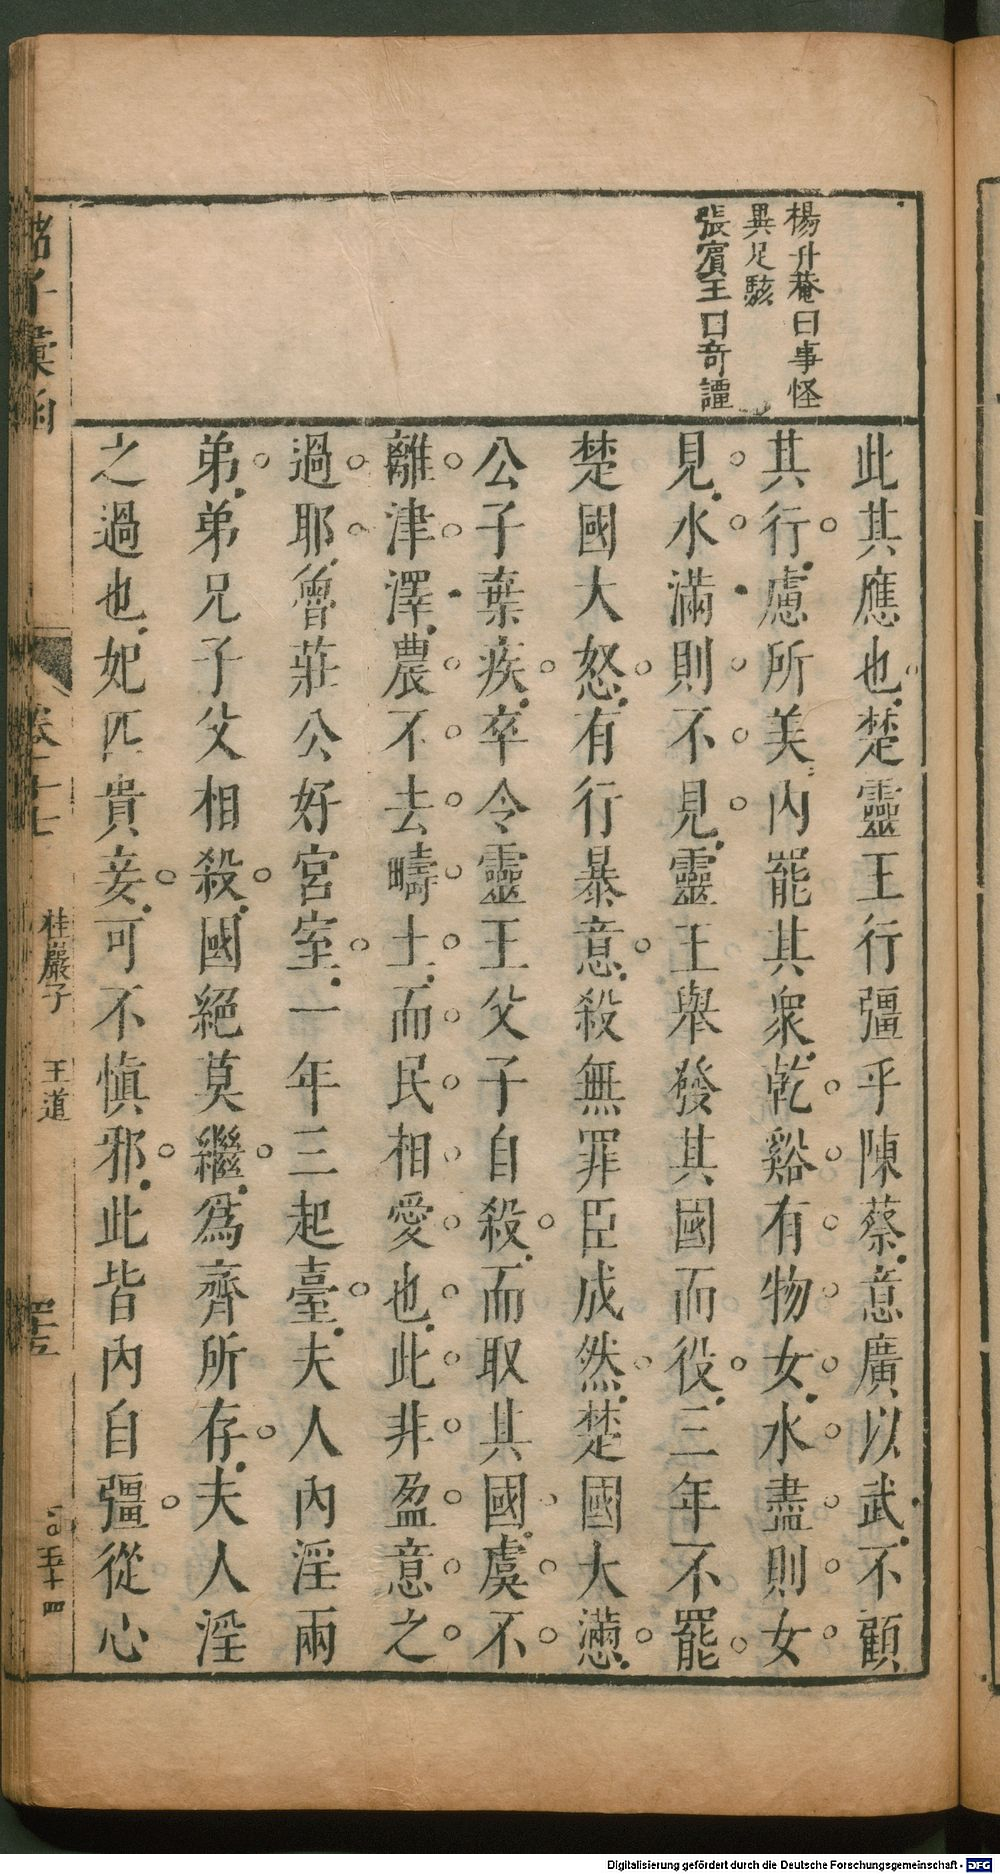 楊升菴曰事怪
異足駭
張賓王曰奇譚
此其應也楚靈王行彊乎陳蔡意廣以武不顧
其行慮所美內罷其衆乾谿有物女水盡則女
見水滿則不見靈王舉發其國而役三年不罷
楚國大怒有行暴意殺無罪臣成然楚國大懣
公子棄疾卒令靈王父子自殺而取其國虞不
離津澤農不去疇土而民相愛也此非盈意之
過耶魯莊公好宮室一年三起臺夫人內淫兩
弟弟兄子父相殺國絕莫繼爲齊所存夫人淫
之過也妃匹貴妾可不慎邪此皆內自彊從心
諸子彙函
卷二十七
桂巖子
王道
五十四
Digitalisierung gefördert durch die Deutsche Forschungsgemeinschaft - DFG